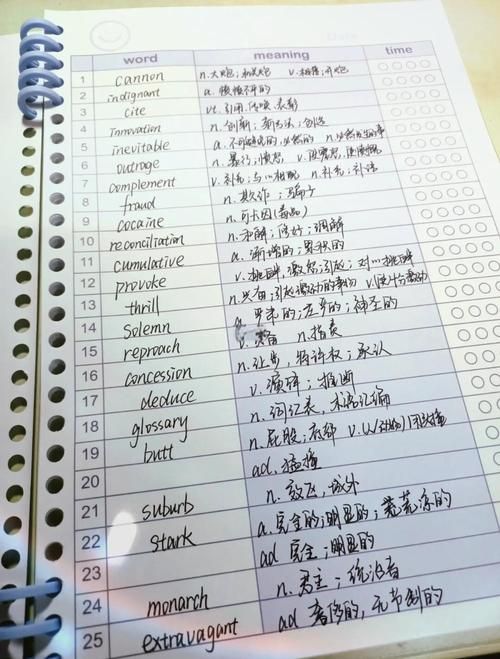 word meaning time
1 cannon n.大炮;机关炮 v.相撞;开炮
2 indignant a.愤愤不平的
3 cite vt.引用;传唤;表彰
4 Innovation n.创新;新方法;创造
5 inevitable a.不可避免的;必然的 n.必然发生的事
6 outrage n.暴行;愤怒 v.
7 complement v.补充;与…相配 n.补充;补语
8 fraud n.欺诈;骗子
9 cocaine n.可卡因(毒品)
10 reconciliation n.和解;修好;调解
11 cumulative a.渐增的;累积的
12 provoke v.挑衅,激怒;引起;对…挑衅
13 thrill n.兴奋;引起激动的事物 v.
14 Solemn a.严肃的;庄严的;神圣的
15 reproach v.责备 n.指责
16 concession n.让步,特许权;承认
17 deduce v.演绎;推断
18 glossary n.词汇表,术语汇编
19 butt n.屁股;底部 v.
20 ad.猛撞
21 suburb n.郊区,城外
22 stark a.完全的;明显的;荒凉的
23 ad 完全;明显的
24 monarch n.君主;统治者
25 extravagant ad 奢侈的,无节制的